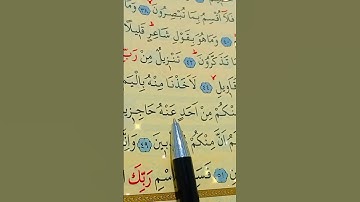 فَلَٓا اُقْسِمُ بِمَا تُبْصِرُونَ ﴿٣٨﴾ وَمَا
وَمَا هُوَ بِقَوْلِ شَاعِرٍ قَلِيلًا
مَا تَذَكَّرُونَ ﴿٤٢﴾ تَنْزِيلٌ مِنْ رَبِّ
قَاوِيلِ ﴿٤٤﴾ لَاَخَذْنَا مِنْهُ بِالْيَمِ
مِنْكُمْ مِنْ اَحَدٍ عَنْهُ حَاجِزِي
مُ اَنَّ مِنْكُمْ بِينَ ﴿٤٩﴾ وَاِنَّ
﴿٥١﴾ فَسَ اسْمِ رَبِّكَ